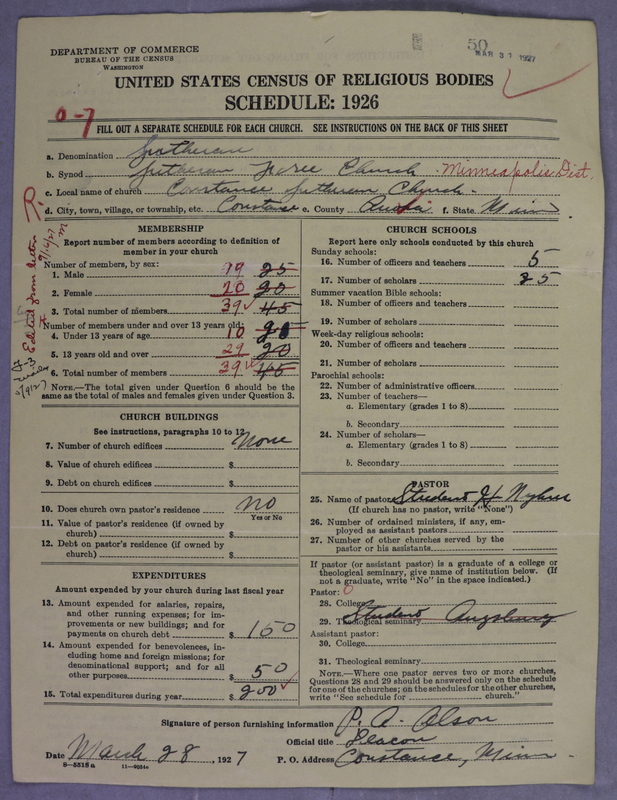 DEPARTMENT OF COMMERCE
BUREAU OF THE CENSUS
WASHINGTON
50
MAR 31 1927
UNITED STATES CENSUS OF RELIGIOUS BODIES
SCHEDULE: 1926
0-7
FILL OUT A SEPARATE SCHEDULE FOR EACH CHURCH. SEE INSTRUCTIONS ON THE BACK OF THIS SHEET
a. Denomination Lutheran
b. Synod Lutheran Free Church - Minneapolis Dist.
c. Local name of church Constance Lutheran Church
d. City, town, village, or township, etc. Constance e. County Anoka f. State Minn
MEMBERSHIP
Report number of members according to definition of member in your church
Number of members, by sex:
1. Male 19 25
2. Female 20 20
3. Total number of members 39 45
Number of members under and over 13 years old:
4. Under 13 years of age 10 20
5. 13 years old and over 29 20
6. Total number of members 39 45
NOTE.—The total given under Question 6 should be the same as the total of males and females given under Question 3.
Edited from letter
9/16/27
CHURCH BUILDINGS
See instructions, paragraphs 10 to 12
7. Number of church edifices None
8. Value of church edifices $
9. Debt on church edifices $
10. Does church own pastor's residence No
Yes or No
11. Value of pastor's residence (if owned by church) $
12. Debt on pastor's residence (if owned by church) $
EXPENDITURES
Amount expended by your church during last fiscal year
13. Amount expended for salaries, repairs, and other running expenses; for improvements or new buildings; and for payments on church debt $ 150
14. Amount expended for benevolences, including home and foreign missions; for denominational support; and for all other purposes $ 50
15. Total expenditures during year $ 200
CHURCH SCHOOLS
Report here only schools conducted by this church
Sunday schools:
16. Number of officers and teachers 5
17. Number of scholars 25
Summer vacation Bible schools:
18. Number of officers and teachers
19. Number of scholars
Week-day religious schools:
20. Number of officers and teachers
21. Number of scholars
Parochial schools:
22. Number of administrative officers
23. Number of teachers—
a. Elementary (grades 1 to 8)
b. Secondary
24. Number of scholars—
a. Elementary (grades 1 to 8)
b. Secondary
PASTOR
25. Name of pastor Student H Nyhus
(If church has no pastor, write "None")
26. Number of ordained ministers, if any, employed as assistant pastors
27. Number of other churches served by the pastor or his assistants
If pastor (or assistant pastor) is a graduate of a college or theological seminary, give name of institution below. (If not a graduate, write "No" in the space indicated.)
Pastor: 0
28. College
29. Theological seminary Student Augsburg
Assistant pastor:
30. College
31. Theological seminary
NOTE.—Where one pastor serves two or more churches, Questions 28 and 29 should be answered only on the schedule for one of the churches; on the schedules for the other churches, write "See schedule for church."
Signature of person furnishing information P. A. Olson
Official title Deacon
Date March 28, 1927 P. O. Address Constance, Minn
8-5518a 11-9054